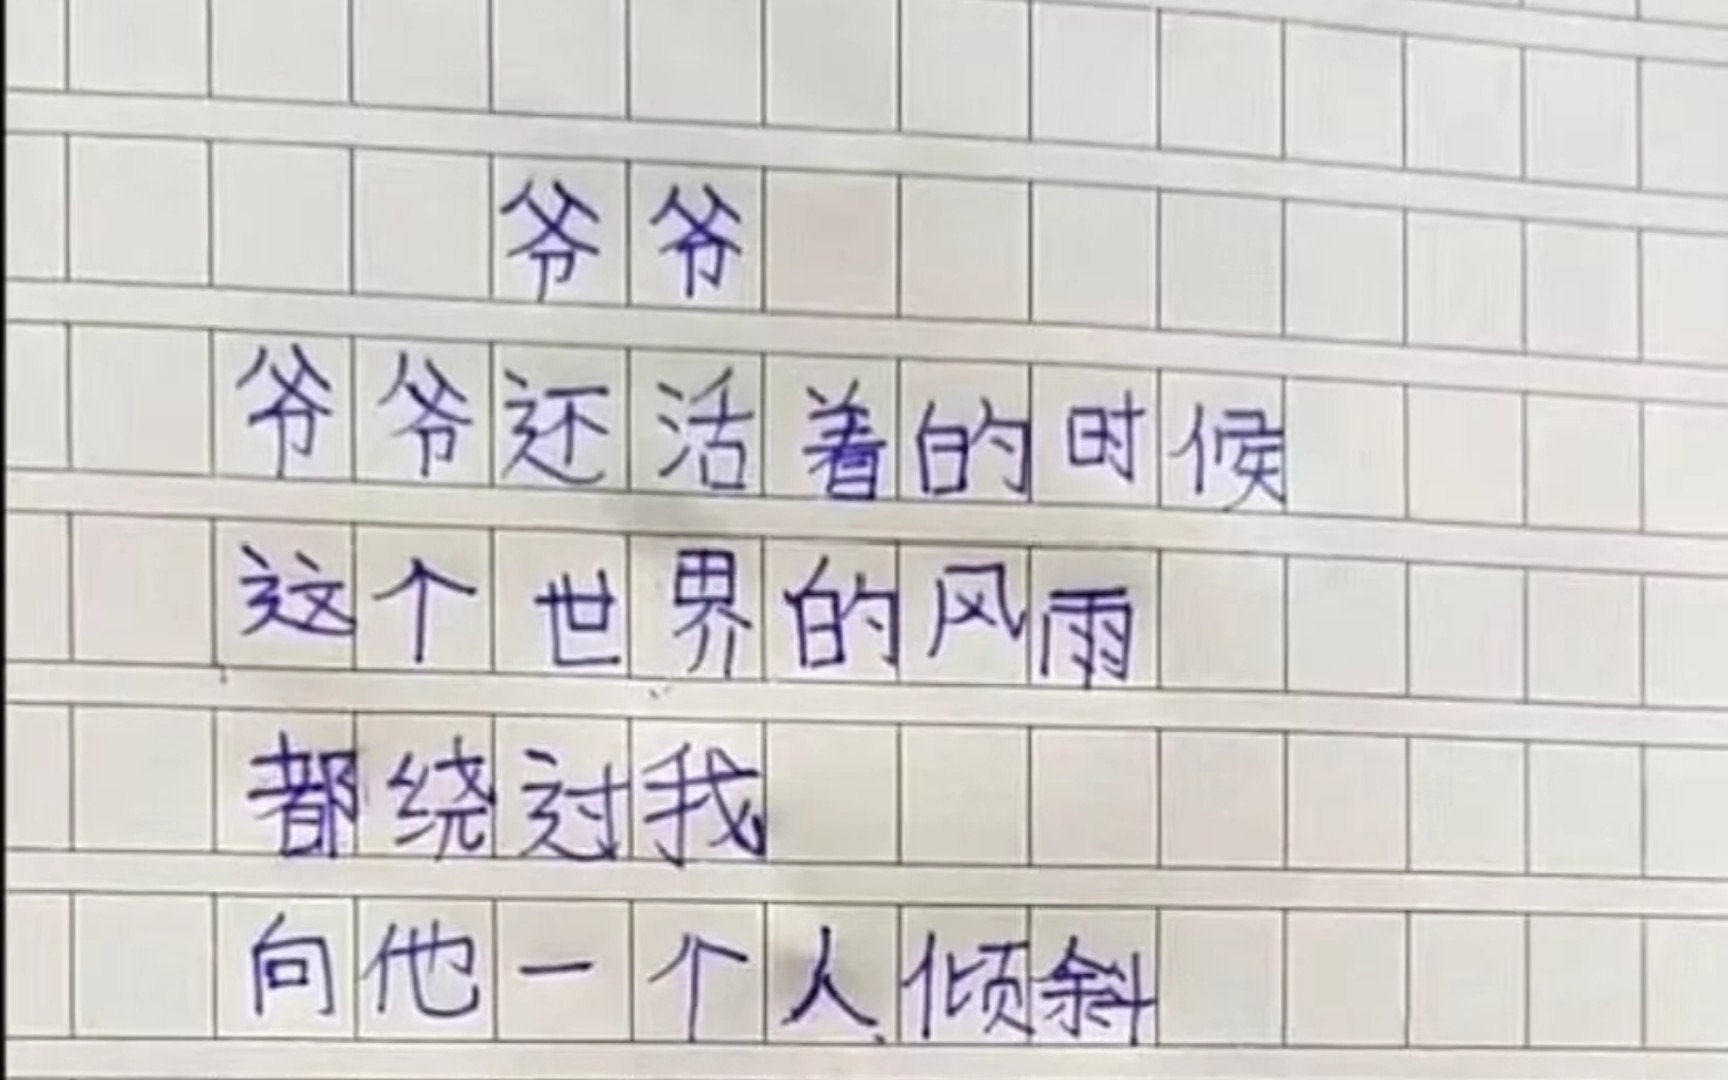 爷爷
爷爷还活着的时候
这个世界的风雨
都绕过我
向他一个人倾斜